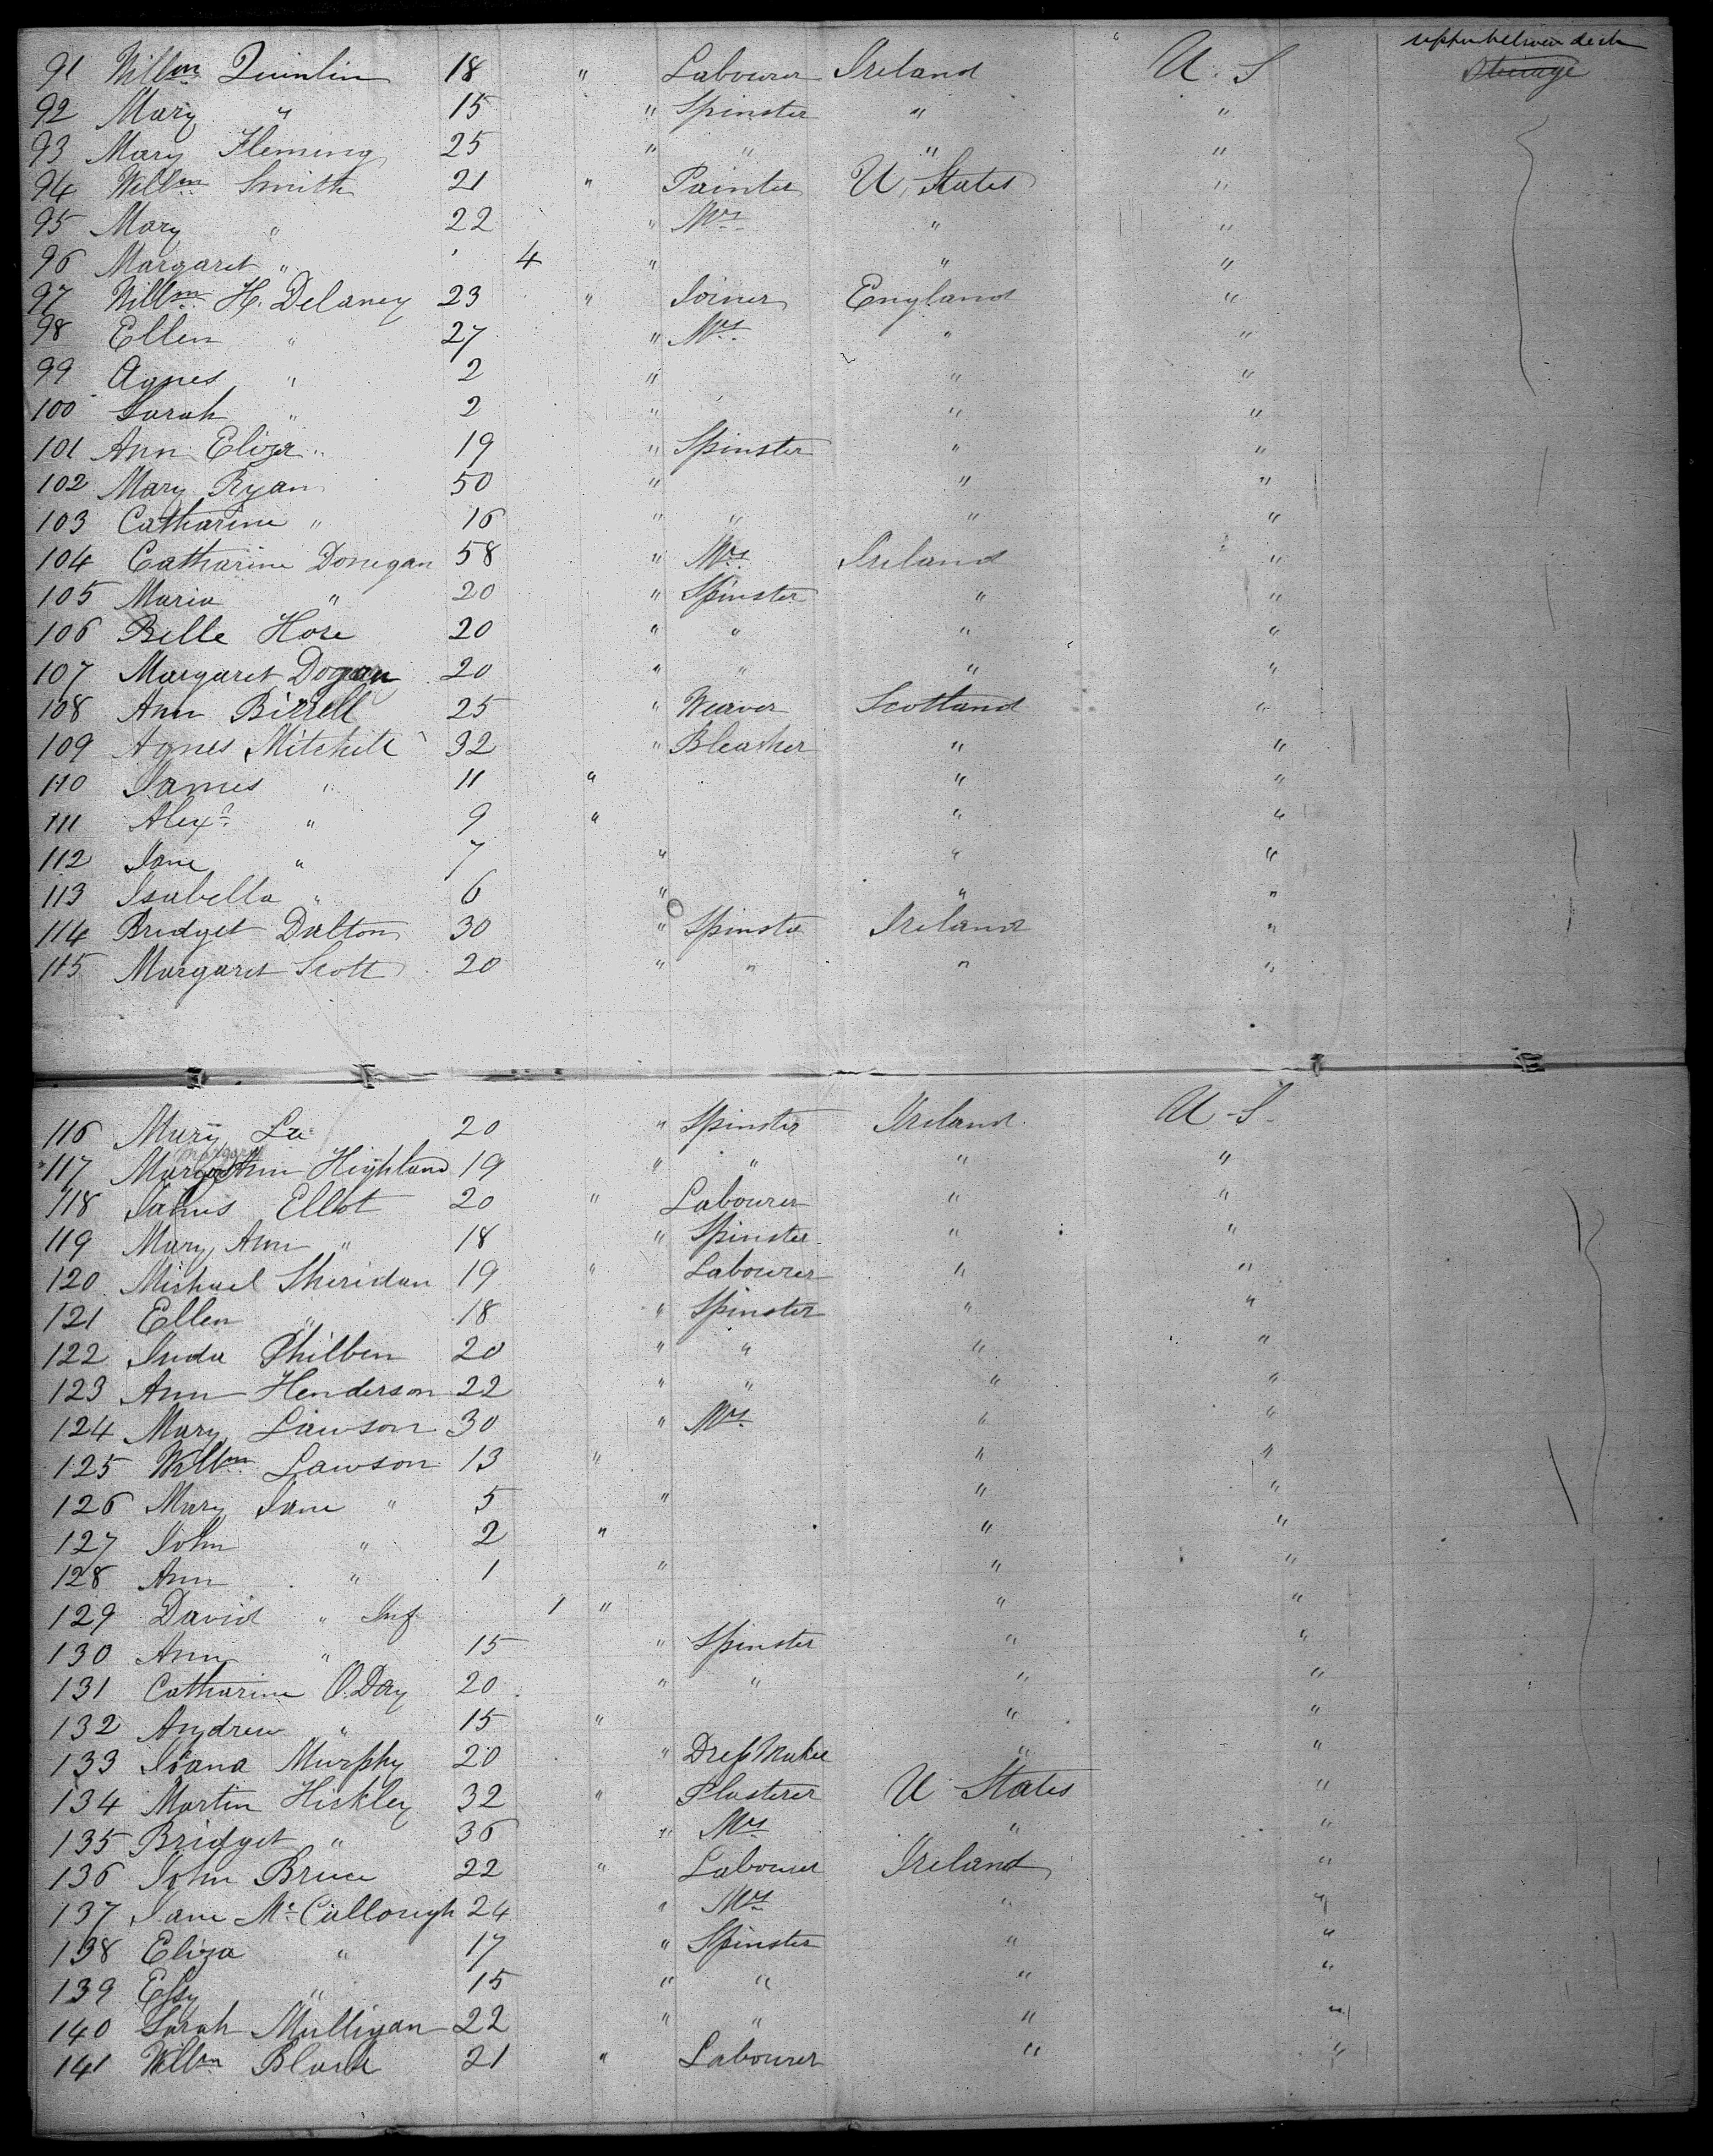 upper between deck
91 Willm Quinlin 18 " Labourer Ireland U.S Steerage
92 Mary " 15 " Spinster " "
93 Mary Fleming 25 " " " "
94 Willm Smith 21 " Painter U. States "
95 Mary " 22 " Mrs " "
96 Margaret " ' 4 " " "
97 Willm H. Delaney 23 " Joiner England "
98 Ellen " 27 " Mrs " "
99 Agnes " 2 " " "
100 Sarah " 2 " " "
101 Ann Eliza " 19 " Spinster " "
102 Mary Ryan 50 " " "
103 Catharine " 16 " " " "
104 Catharine Donegan 58 " Mrs Ireland "
105 Maria " 20 " Spinster " "
106 Belle Hore 20 " " " "
107 Margaret Dogan 20 " " " "
108 Ann Birrell 25 " Weaver Scotland "
109 Agnes Mitchell 32 " Bleacher " "
110 James " 11 " " "
111 Alexr " 9 " " "
112 Jane " 7 " " "
113 Isabella " 6 " " "
114 Bridget Dalton 30 " Spinster Ireland "
115 Margaret Scott 20 " " " "
116 Mary Lee 20 " Spinster Ireland U-S.
Margaret
117 Ann Highland 19 " " " "
118 James Elliot 20 " Labourer " "
119 Mary Ann " 18 " Spinster " "
120 Michael Sheridan 19 " Labourer " "
121 Ellen " 18 " Spinster " "
122 Juda Philben 20 " " " "
123 Ann Henderson 22 " " " "
124 Mary Lawson 30 " Mrs " "
125 Willm Lawson 13 " " "
126 Mary Jane " 5 " " "
127 John " 2 " " "
128 Ann " 1 " " "
129 David " Inf 1 " " "
130 Ann " 15 " Spinster " "
131 Catharine O.Day 20 " " " "
132 Andrew " 15 " " "
133 Joana Murphy 20 " Dress Maker " "
134 Martin Hickley 32 " Plasterer U States "
135 Bridget " 36 " Mrs " "
136 John Bruce 22 " Labourer Ireland "
137 Jane Mc Cullough 24 " Mrs " "
138 Eliza " 17 " Spinster " "
139 Essy " 15 " " " "
140 Sarah Mulligan 22 " " " "
141 Willm Blank 21 " Labourer " "